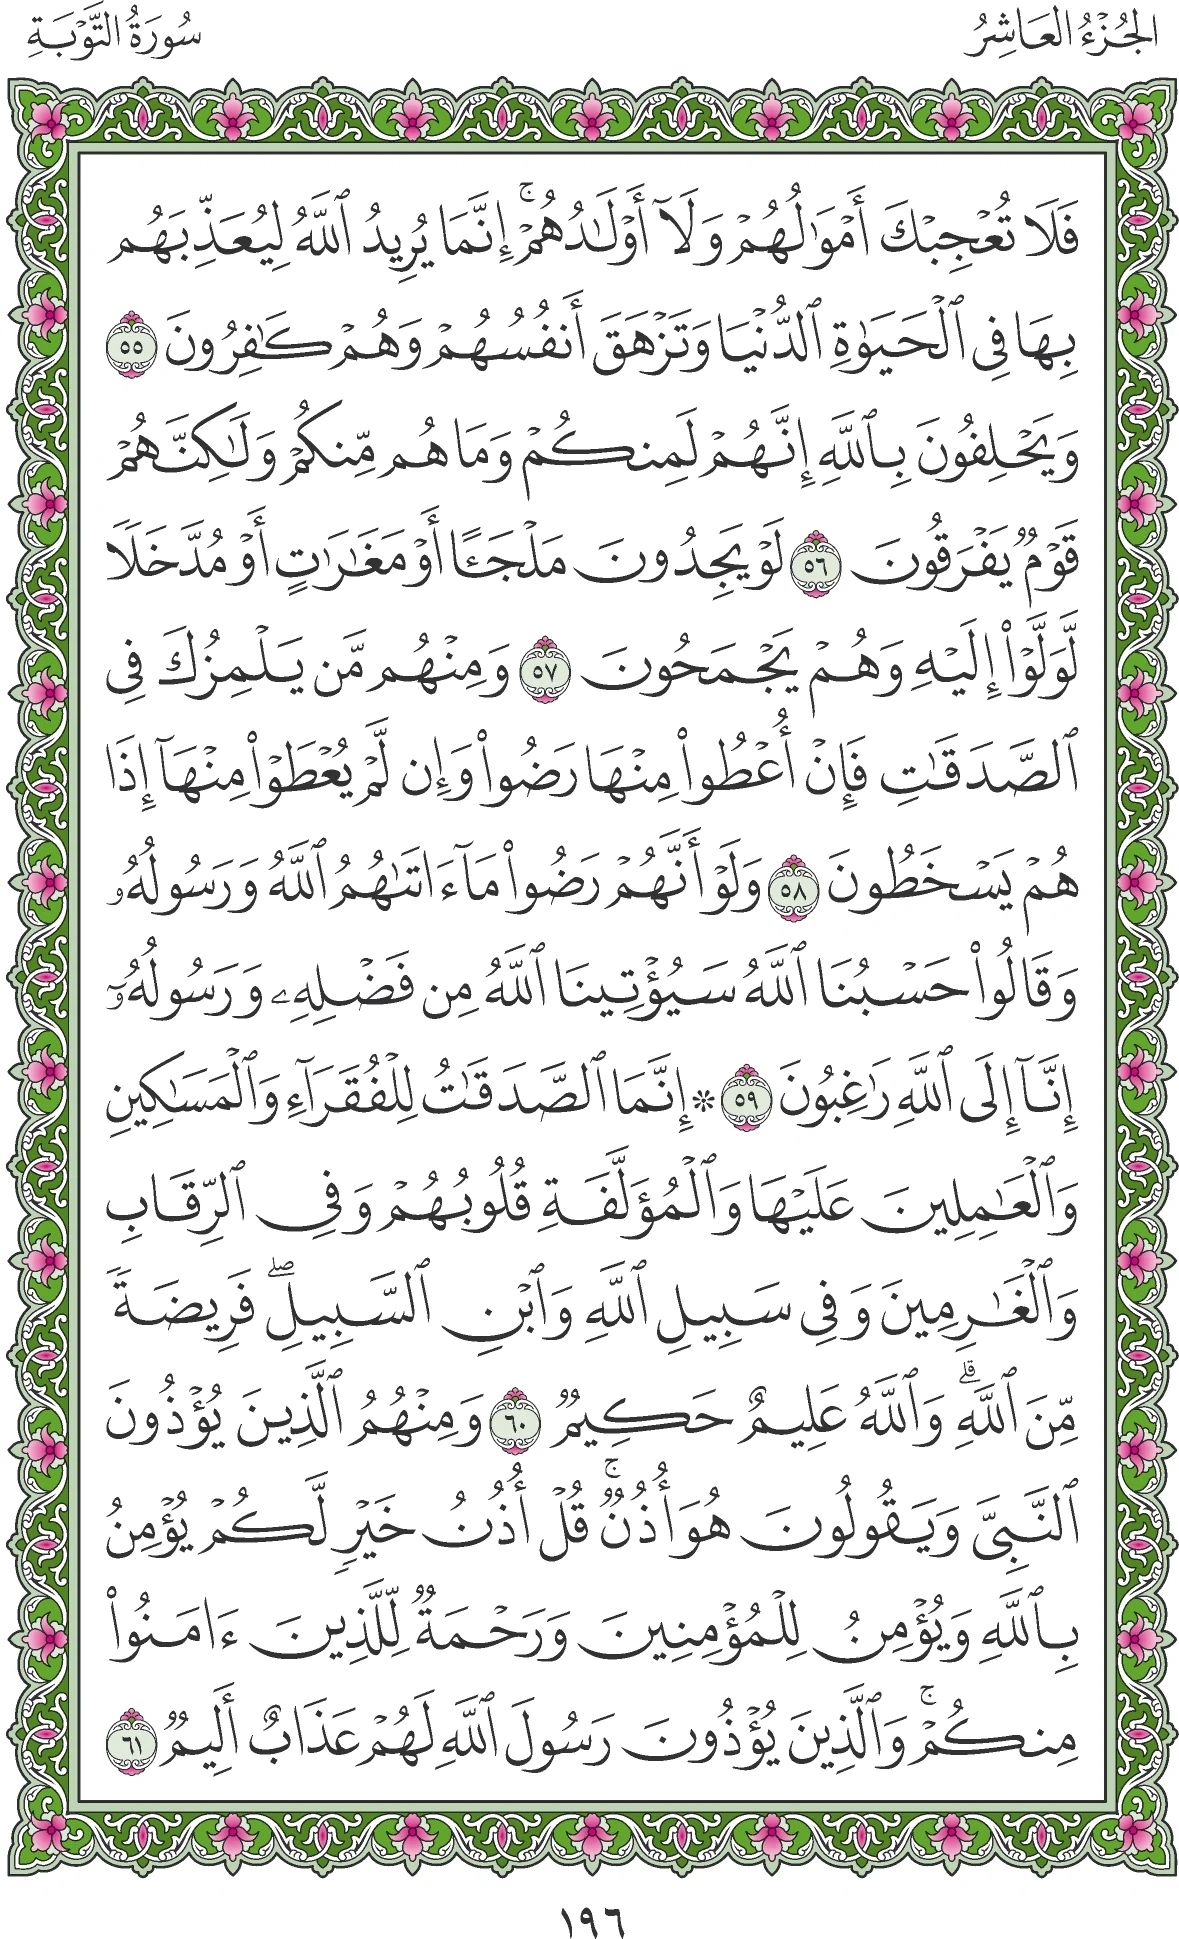 الجُزْءُ العَاشِرُ
سُورَةُ التَّوْبَةِ
فَلَا تُعْجِبْكَ أَمْوَٰلُهُمْ وَلَآ أَوْلَٰدُهُمْ ۚ إِنَّمَا يُرِيدُ ٱللَّهُ لِيُعَذِّبَهُم
بِهَا فِى ٱلْحَيَوٰةِ ٱلدُّنْيَا وَتَزْهَقَ أَنفُسُهُمْ وَهُمْ كَٰفِرُونَ ٥٥
وَيَحْلِفُونَ بِٱللَّهِ إِنَّهُمْ لَمِنكُمْ وَمَا هُم مِّنكُمْ وَلَٰكِنَّهُمْ
قَوْمٌ يَفْرَقُونَ ٥٦ لَوْ يَجِدُونَ مَلْجَـًٔا أَوْ مَغَٰرَٰتٍ أَوْ مُدَّخَلًا
لَّوَلَّوْا۟ إِلَيْهِ وَهُمْ يَجْمَحُونَ ٥٧ وَمِنْهُم مَّن يَلْمِزُكَ فِى
ٱلصَّدَقَٰتِ فَإِنْ أُعْطُوا۟ مِنْهَا رَضُوا۟ وَإِن لَّمْ يُعْطَوْا۟ مِنْهَآ إِذَا
هُمْ يَسْخَطُونَ ٥٨ وَلَوْ أَنَّهُمْ رَضُوا۟ مَآ ءَاتَىٰهُمُ ٱللَّهُ وَرَسُولُهُۥ
وَقَالُوا۟ حَسْبُنَا ٱللَّهُ سَيُؤْتِينَا ٱللَّهُ مِن فَضْلِهِۦ وَرَسُولُهُۥٓ
إِنَّآ إِلَى ٱللَّهِ رَٰغِبُونَ ٥٩ * إِنَّمَا ٱلصَّدَقَٰتُ لِلْفُقَرَآءِ وَٱلْمَسَٰكِينِ
وَٱلْعَٰمِلِينَ عَلَيْهَا وَٱلْمُؤَلَّفَةِ قُلُوبُهُمْ وَفِى ٱلرِّقَابِ
وَٱلْغَٰرِمِينَ وَفِى سَبِيلِ ٱللَّهِ وَٱبْنِ ٱلسَّبِيلِ ۖ فَرِيضَةً
مِّنَ ٱللَّهِ ۗ وَٱللَّهُ عَلِيمٌ حَكِيمٌ ٦٠ وَمِنْهُمُ ٱلَّذِينَ يُؤْذُونَ
ٱلنَّبِىَّ وَيَقُولُونَ هُوَ أُذُنٌ ۚ قُلْ أُذُنُ خَيْرٍ لَّكُمْ يُؤْمِنُ
بِٱللَّهِ وَيُؤْمِنُ لِلْمُؤْمِنِينَ وَرَحْمَةٌ لِّلَّذِينَ ءَامَنُوا۟
مِنكُمْ ۚ وَٱلَّذِينَ يُؤْذُونَ رَسُولَ ٱللَّهِ لَهُمْ عَذَابٌ أَلِيمٌ ٦١
١٩٦